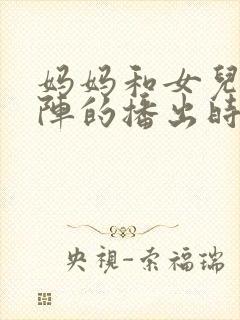 妈妈和女兒
陣的播出時
央視-索福瑞